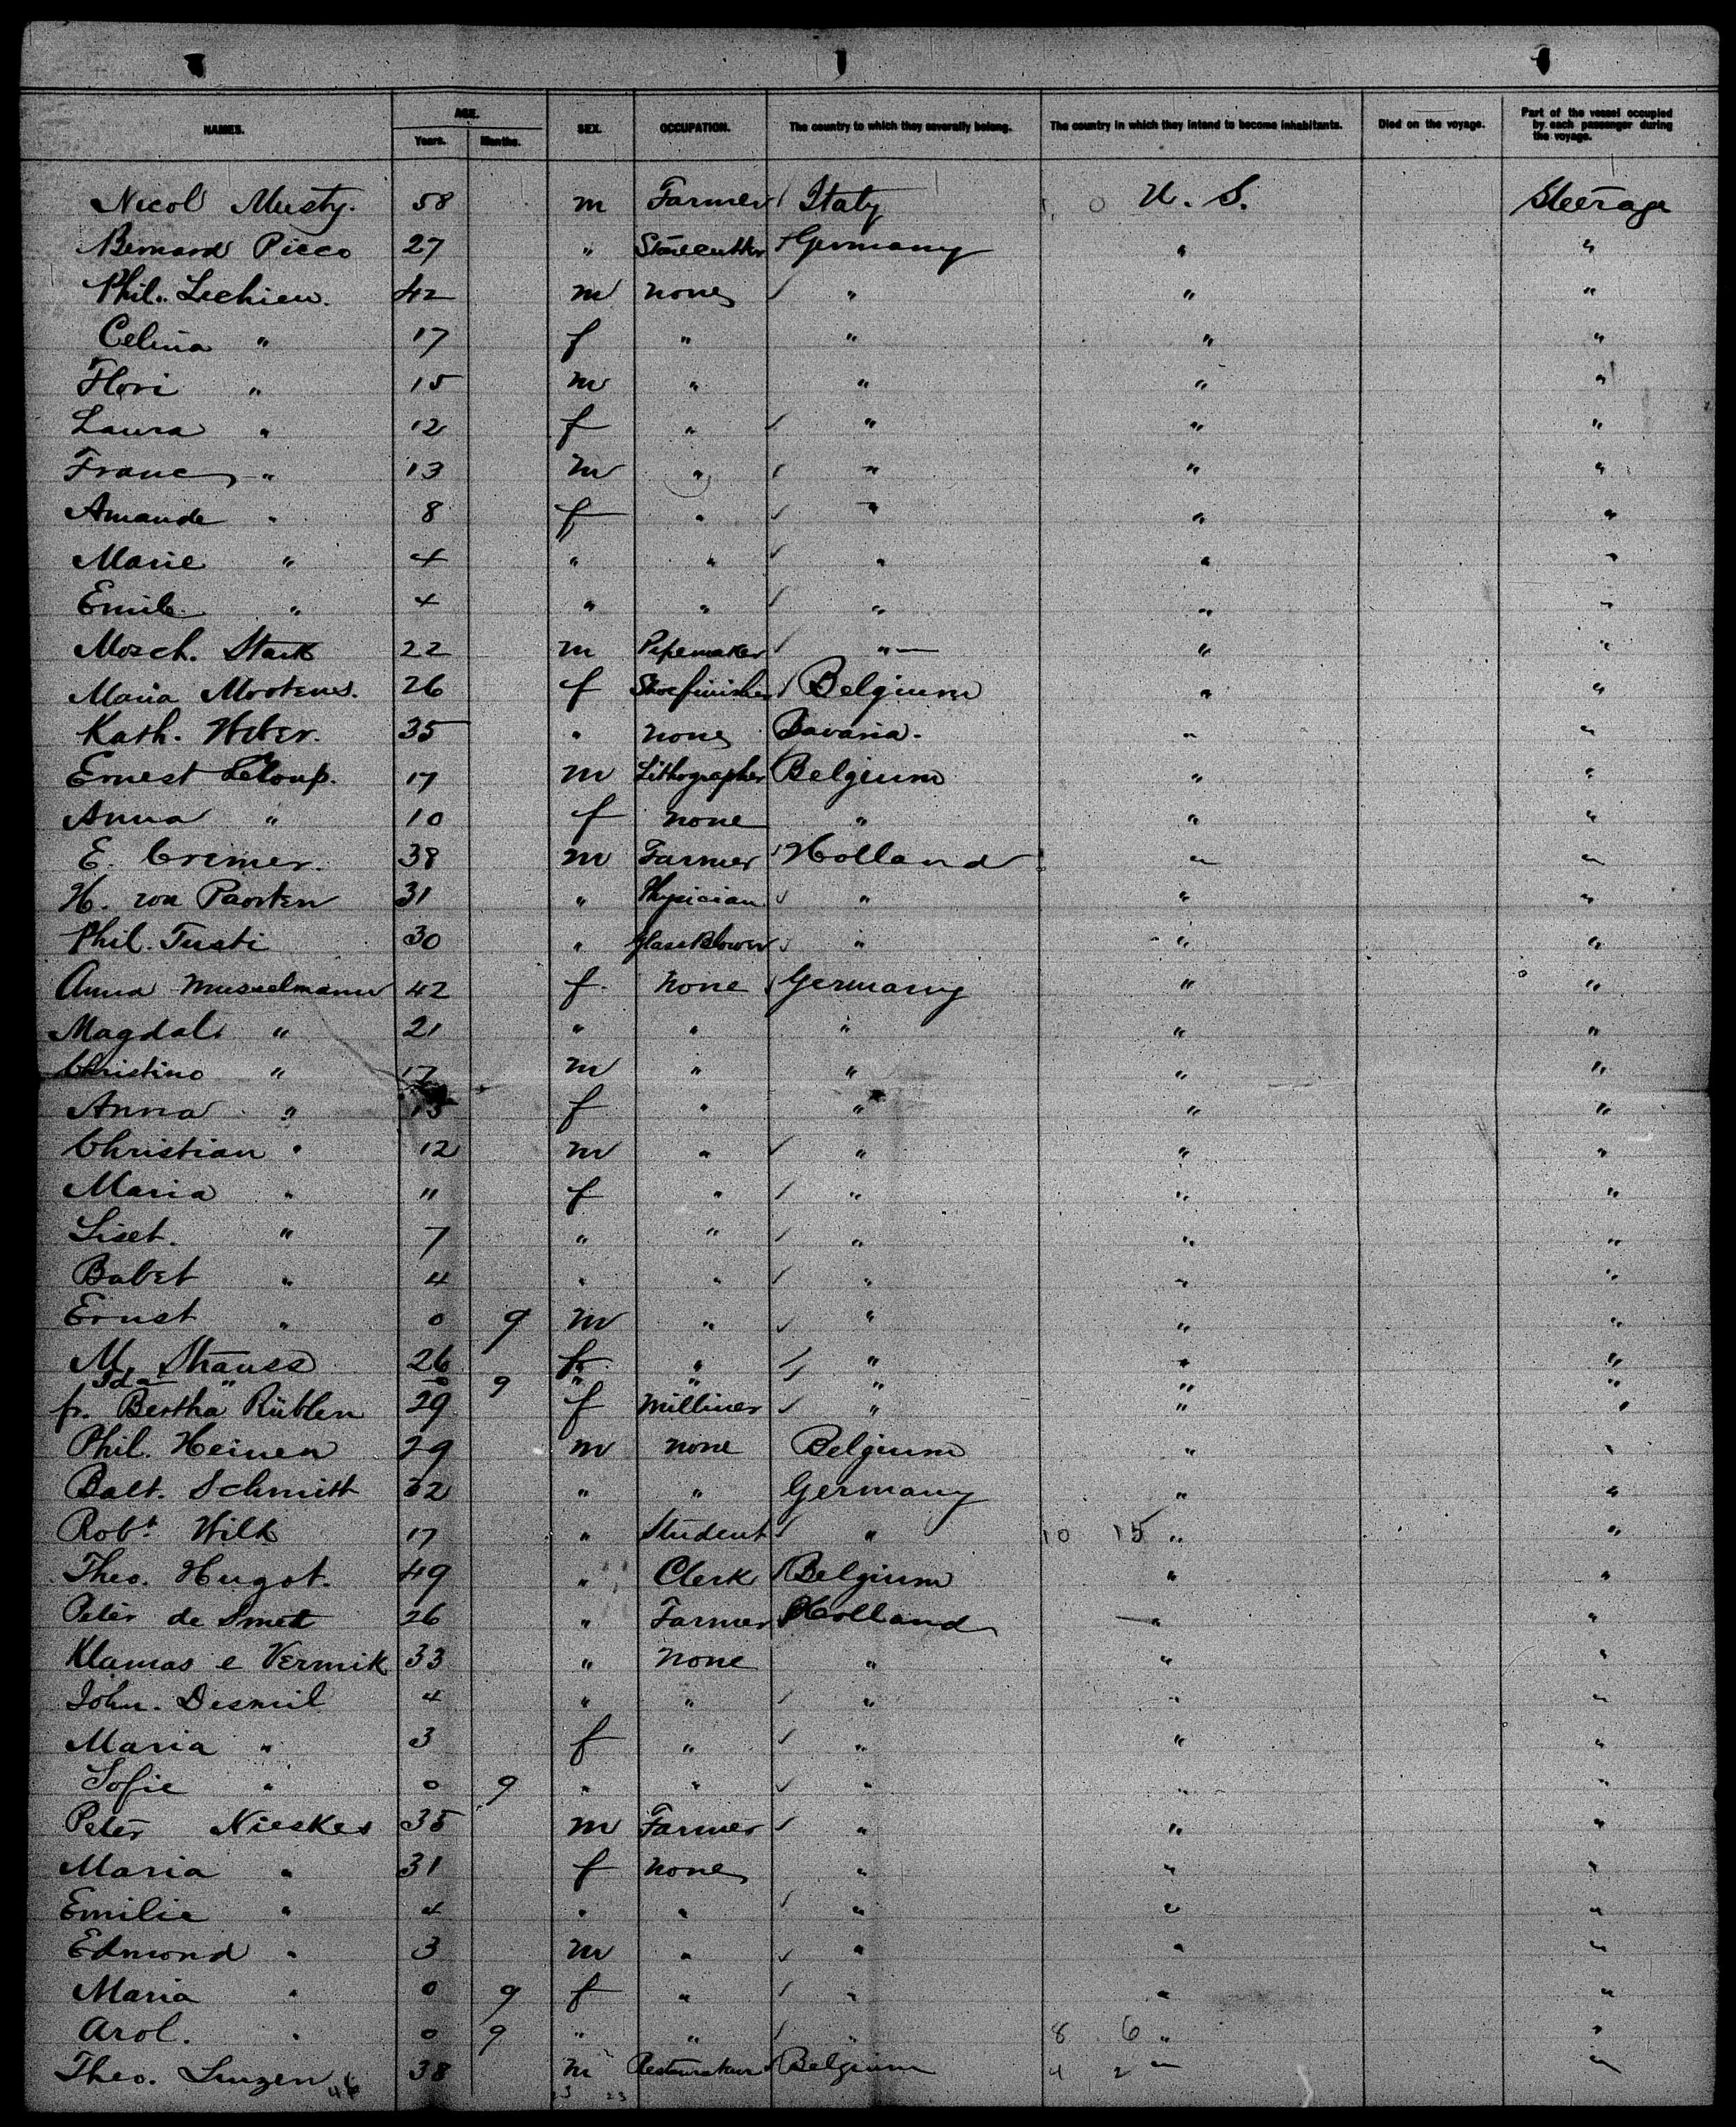 NAMES. AGE. Years. Months. SEX. OCCUPATION. The country to which they severally belong. The country in which they intend to become inhabitants. Died on the voyage. Part of the vessel occupied by each passenger during the voyage.
Nicol Musty. 58 m Farmer Italy U. S. Steerage
Bernard Picco 27 " Stonecutter Germany " "
Phil. Lechien. 42 m none " " "
Celina " 17 f " " " "
Flori " 15 m " " " "
Laura " 12 f " " " "
Franc " 13 m " " " "
Amande " 8 f " " " "
Marie " 4 " " " " "
Emile " 4 " " " " "
Mosch. Stark 22 m Pipemaker " " "
Maria Mortens. 26 f Shoefinisher Belgium " "
Kath. Weber. 35 " none Bavaria. " "
Ernest Leloup. 17 m Lithographer Belgium " "
Anna " 10 f none " " "
E. Cremer. 38 m Farmer Holland " "
H. von Paosten 31 " Physician " " "
Phil. Tusti 30 " Glass Blower " " "
Anna Musselmann 42 f. none Germany " "
Magdal. " 21 " " " " "
Christino " 17 m " " " "
Anna " 15 f " " " "
Christian " 12 m " " " "
Maria " " f " " " "
Liset. " 7 " " " " "
Babet " 4 " " " " "
Ernst " 0 9 m " " " "
M. Strauss 26 f " " " "
Ida " 0 9 " " " " "
fr. Bertha Rüblen 29 f Milliner " " "
Phil. Heinen 29 m none Belgium " "
Balt. Schmitt 32 " " Germany " "
Robt Wilk 17 " Student " 10 15 " "
Theo. Hugot. 49 " Clerk Belgium " "
Peter de Smet 26 " Farmer Holland " "
Klamas e Vermik 33 " none " " "
John. Desmil 4 " " " " "
Maria " 3 f " " " "
Sofie " 0 9 " " " " "
Peter Nieskes 35 m Farmer " " "
Maria " 31 f none " " "
Emilie " 4 " " " " "
Edmond " 3 m " " " "
Maria " 0 9 f " " " "
Arol. " 0 9 " " " 8 6 " "
Theo. Linzen 46 38 m Restaurateur Belgium 4 2 " "
23 23